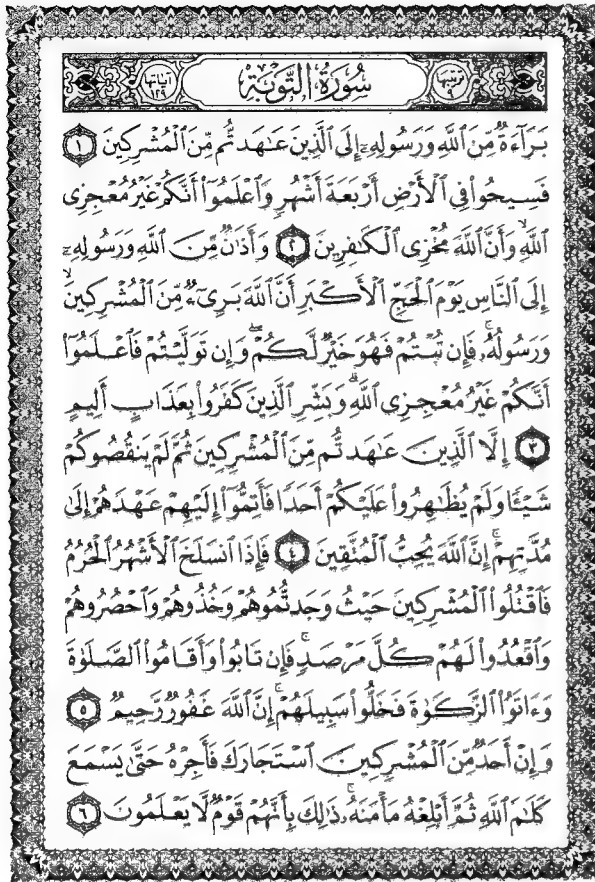 سُورَةُ التَّوْبَةِ
آياتها ١٢٩
بَرَآءَةٌ مِّنَ ٱللَّهِ وَرَسُولِهِۦٓ إِلَى ٱلَّذِينَ عَـٰهَدتُّم مِّنَ ٱلْمُشْرِكِينَ ١
فَسِيحُوا۟ فِى ٱلْأَرْضِ أَرْبَعَةَ أَشْهُرٍ وَٱعْلَمُوٓا۟ أَنَّكُمْ غَيْرُ مُعْجِزِى
ٱللَّهِ ۙ وَأَنَّ ٱللَّهَ مُخْزِى ٱلْكَـٰفِرِينَ ٢ وَأَذَٰنٌ مِّنَ ٱللَّهِ وَرَسُولِهِۦٓ
إِلَى ٱلنَّاسِ يَوْمَ ٱلْحَجِّ ٱلْأَكْبَرِ أَنَّ ٱللَّهَ بَرِىٓءٌ مِّنَ ٱلْمُشْرِكِينَ ۙ
وَرَسُولُهُۥ ۚ فَإِن تُبْتُمْ فَهُوَ خَيْرٌ لَّكُمْ ۖ وَإِن تَوَلَّيْتُمْ فَٱعْلَمُوٓا۟
أَنَّكُمْ غَيْرُ مُعْجِزِى ٱللَّهِ ۗ وَبَشِّرِ ٱلَّذِينَ كَفَرُوا۟ بِعَذَابٍ أَلِيمٍ
٣ إِلَّا ٱلَّذِينَ عَـٰهَدتُّم مِّنَ ٱلْمُشْرِكِينَ ثُمَّ لَمْ يَنقُصُوكُمْ
شَيْـًٔا وَلَمْ يُظَـٰهِرُوا۟ عَلَيْكُمْ أَحَدًا فَأَتِمُّوٓا۟ إِلَيْهِمْ عَهْدَهُمْ إِلَىٰ
مُدَّتِهِمْ ۚ إِنَّ ٱللَّهَ يُحِبُّ ٱلْمُتَّقِينَ ٤ فَإِذَا ٱنسَلَخَ ٱلْأَشْهُرُ ٱلْحُرُمُ
فَٱقْتُلُوا۟ ٱلْمُشْرِكِينَ حَيْثُ وَجَدتُّمُوهُمْ وَخُذُوهُمْ وَٱحْصُرُوهُمْ
وَٱقْعُدُوا۟ لَهُمْ كُلَّ مَرْصَدٍ ۚ فَإِن تَابُوا۟ وَأَقَامُوا۟ ٱلصَّلَوٰةَ
وَءَاتَوُا۟ ٱلزَّكَوٰةَ فَخَلُّوا۟ سَبِيلَهُمْ ۚ إِنَّ ٱللَّهَ غَفُورٌ رَّحِيمٌ ٥
وَإِنْ أَحَدٌ مِّنَ ٱلْمُشْرِكِينَ ٱسْتَجَارَكَ فَأَجِرْهُ حَتَّىٰ يَسْمَعَ
كَلَـٰمَ ٱللَّهِ ثُمَّ أَبْلِغْهُ مَأْمَنَهُۥ ۚ ذَٰلِكَ بِأَنَّهُمْ قَوْمٌ لَّا يَعْلَمُونَ ٦